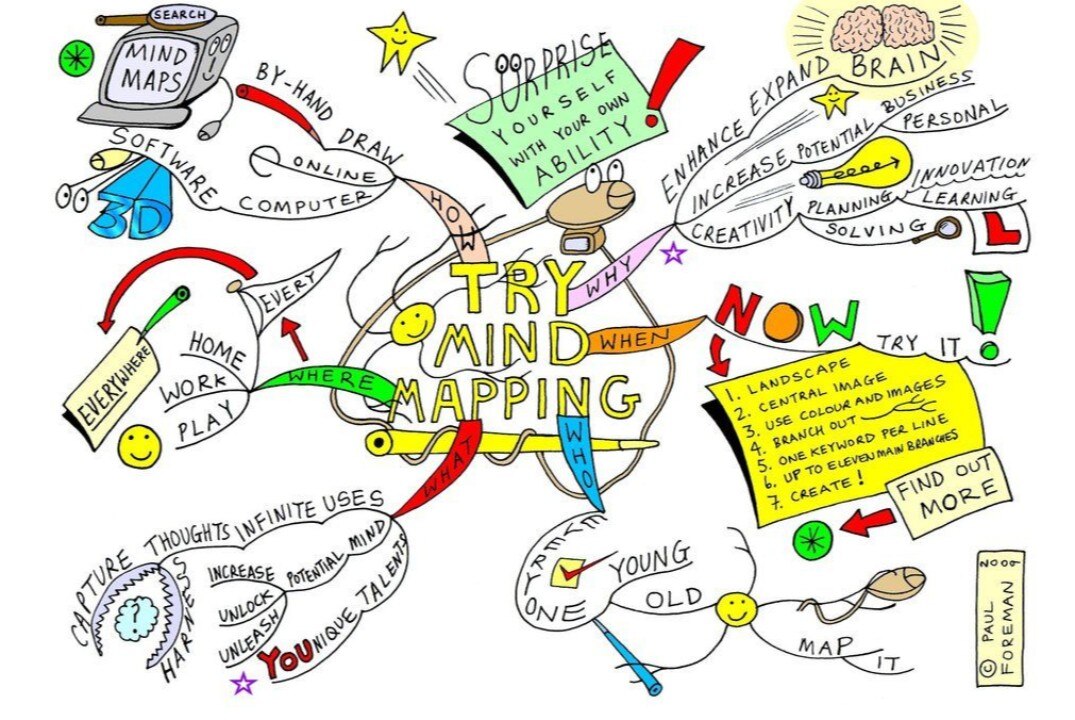 SEARCH
MIND
MAPS
BY-HAND DRAW
ONLINE
SOFTWARE
COMPUTER
3D
HOW
SURPRISE
YOURSELF
WITH YOUR OWN
ABILITY!
ENHANCE EXPAND BRAIN
INCREASE POTENTIAL
BUSINESS
PERSONAL
CREATIVITY
PLANNING
INNOVATION
LEARNING
SOLVING
L
WHY
TRY
MIND
MAPPING
WHEN
NOW
TRY IT !
1. LANDSCAPE
2. CENTRAL IMAGE
3. USE COLOUR AND IMAGES
4. BRANCH OUT
5. ONE KEYWORD PER LINE
6. UP TO ELEVEN MAIN BRANCHES
7. CREATE!
FIND OUT
MORE
WHERE
EVERY
HOME
WORK
PLAY
EVERYWHERE
WHAT
INFINITE USES
CAPTURE THOUGHTS
HARNESS
?
POTENTIAL MIND
INCREASE
UNLOCK
UNLEASH
YOUNIQUE TALENTS
WHO
EVERYONE
YOUNG
OLD
MAP
IT
© PAUL
FOREMAN 2009